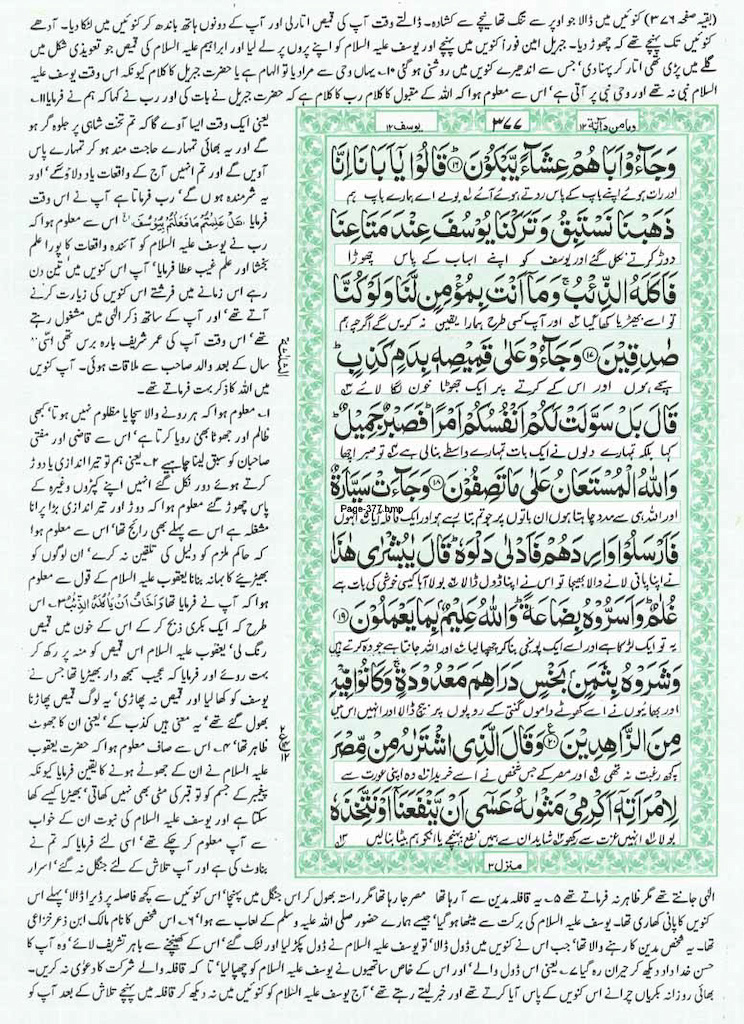 (بقیہ صفحہ ۳۷۶) کنوئیں میں ڈالا جو اوپر سے تنگ تھا نیچے سے کشادہ۔ ڈالتے وقت آپ کی قمیص اتار لی اور آپ کے دونوں ہاتھ باندھ کر کنوئیں میں لٹکا دیا۔ آدھے
کنوئیں تک پہنچے تھے کہ چھوڑ دیا۔ جبریل امین فوراً کنویں میں پہنچے اور یوسف علیہ السلام کو اپنے پروں پر لے لیا اور ابراہیم علیہ السلام کی قمیص جو تعویذی شکل میں
گلے میں پڑی تھی اتار کر پہنا دی، جس سے اندھیرے کنویں میں روشنی ہو گئی ۱۰۔ یہاں وحی سے مراد یا تو الہام ہے یا حضرت جبریل کا کلام کیونکہ اس وقت یوسف علیہ
السلام نبی نہ تھے اور وحی نبی پر آتی ہے، اس سے معلوم ہوا کہ اللہ کے مقبول کا کلام رب کا کلام ہے کہ حضرت جبریل نے بات کی اور رب نے کہا کہ ہم نے فرمایا ۱۱۔
ومامن دآبۃ ۱۲
۳۷۷
یوسف ۱۲
وَجَآءُوْٓ اَبَاهُمْ عِشَآءً يَّبْكُوْنَ ۝۱۶ قَالُوْا يٰٓاَبَانَآ اِنَّا
اور رات ہوئے اپنے باپ کے پاس روتے ہوئے آئے بولے اے ہمارے باپ ہم
ذَهَبْنَا نَسْتَبِقُ وَتَرَكْنَا يُوْسُفَ عِنْدَ مَتَاعِنَا
دوڑ کرتے نکل گئے اور یوسف کو اپنے اسباب کے پاس چھوڑا
فَاَكَلَهُ الذِّئْبُ ۚ وَمَآ اَنْتَ بِمُؤْمِنٍ لَّنَا وَلَوْ كُنَّا
تو اسے بھیڑیا کھا گیا اور آپ کسی طرح ہمارا یقین نہ کریں گے اگرچہ ہم
صٰدِقِيْنَ ۝۱۷ وَجَآءُوْ عَلٰى قَمِيْصِهٖ بِدَمٍ كَذِبٍ ؕ
سچے ہوں اور اس کے کرتے پر ایک جھوٹا خون لگا لائے
قَالَ بَلْ سَوَّلَتْ لَكُمْ اَنْفُسُكُمْ اَمْرًا ؕ فَصَبْرٌ جَمِيْلٌ ؕ
کہا بلکہ تمہارے دلوں نے ایک بات تمہارے واسطے بنا لی ہے تو صبر اچھا
وَاللّٰهُ الْمُسْتَعَانُ عَلٰى مَا تَصِفُوْنَ ۝۱۸ وَجَآءَتْ سَيَّارَةٌ
اور اللہ ہی سے مدد چاہتا ہوں ان باتوں پر جو تم بتا رہے ہو اور ایک قافلہ آیا انہوں
Page-377.bmp
فَاَرْسَلُوْا وَارِدَهُمْ فَاَدْلٰى دَلْوَهٗ ؕ قَالَ يٰبُشْرٰى هٰذَا
نے اپنا پانی لانے والا بھیجا تو اس نے اپنا ڈول ڈالا بولا آہا کیسی خوشی کی بات ہے
غُلٰمٌ ؕ وَاَسَرُّوْهُ بِضَاعَةً ؕ وَاللّٰهُ عَلِيْمٌۢ بِمَا يَعْمَلُوْنَ ۝۱۹
یہ تو ایک لڑکا ہے اور اسے ایک پونجی بنا کر چھپا لیا اور اللہ جانتا ہے جو وہ کرتے ہیں
وَشَرَوْهُ بِثَمَنٍۢ بَخْسٍ دَرَاهِمَ مَعْدُوْدَةٍ ۚ وَكَانُوْا فِيْهِ
اور بھائیوں نے اسے کھوٹے داموں گنتی کے روپوں پر بیچ ڈالا اور انہیں اس میں
مِنَ الزَّاهِدِيْنَ ۝۲۰ وَقَالَ الَّذِى اشْتَرٰىهُ مِنْ مِّصْرَ
کچھ رغبت نہ تھی اور مصر کے جس شخص نے اسے خریدا وہ اپنی عورت سے
لِامْرَاَتِهٖٓ اَكْرِمِىْ مَثْوٰىهُ عَسٰٓى اَنْ يَّنْفَعَنَآ اَوْ نَتَّخِذَهٗ
بولا انہیں عزت سے رکھو شاید ان سے ہمیں نفع پہنچے یا انکو ہم بیٹا بنا لیں
منزل ۳
یعنی ایک وقت ایسا آوے گا کہ تم تخت شاہی پر جلوہ گر ہو
گے اور یہ بھائی تمہارے حاجت مند ہو کر تمہارے پاس
آویں گے اور تم انہیں آج کے واقعات یاد دلاؤ گے، اور
یہ شرمندہ ہوں گے، رب فرماتا ہے آپ نے اس وقت
فرمایا هَلْ عَلِمْتُمْ مَّا فَعَلْتُمْ بِيُوْسُفَ اس سے معلوم ہوا کہ
رب نے یوسف علیہ السلام کو آئندہ واقعات کا پورا علم
بخشا اور علم غیب عطا فرمایا، آپ اس کنویں میں تین دن
رہے اس زمانے میں فرشتے اس کنویں کی زیارت کرنے
آتے تھے، اور آپ کے ساتھ ذکر الٰہی میں مشغول رہتے
تھے، اس وقت آپ کی عمر شریف بارہ برس تھی
سال کے بعد والد صاحب سے ملاقات ہوئی۔ آپ کنویں
میں اللہ کا ذکر بہت فرماتے تھے۔
۱۔ معلوم ہوا کہ ہر رونے والا سچا یا مظلوم نہیں ہوتا، کبھی
ظالم اور جھوٹا بھی رویا کرتا ہے، اس سے قاضی اور مفتی
صاحبان کو سبق لینا چاہیے ۲۔ یعنی ہم تو تیر اندازی یا دوڑ
کرتے ہوئے دور نکل گئے انہیں اپنے کپڑوں وغیرہ کے
پاس چھوڑ گئے معلوم ہوا کہ دوڑ اور تیر اندازی بڑا پرانا
مشغلہ ہے اس سے پہلے بھی رائج تھا، اس سے معلوم ہوا
کہ حاکم ملزم کو دلیل کی تلقین نہ کرے، ان لوگوں کو
بھیڑیئے کا بہانہ بنانا یعقوب علیہ السلام کے قول سے معلوم
ہوا کہ آپ نے فرمایا تھا وَاَخَافُ اَنْ يَّاْكُلَهُ الذِّئْبُ ۳۔ اس
طرح کہ ایک بکری ذبح کر کے اس کے خون میں قمیص
رنگ لی، یعقوب علیہ السلام اس قمیص کو منہ پر رکھ کر
بہت روئے اور فرمایا کہ عجیب سمجھ دار بھیڑیا تھا جس نے
یوسف کو کھا لیا اور قمیص نہ پھاڑی، یہ لوگ قمیص پھاڑنا
بھول گئے تھے، یہ معنی ہیں کذب کے، یعنی ان کا جھوٹ
ظاہر تھا، ۴۔ اس سے صاف معلوم ہوا کہ حضرت یعقوب
علیہ السلام نے ان کے جھوٹے ہونے کا یقین فرمایا کیونکہ
پیغمبر کے جسم کو تو قبر کی مٹی بھی نہیں کھاتی، بھیڑیا کیسے کھا
سکتا ہے اور یوسف علیہ السلام کی نبوت ان کے خواب
سے آپ معلوم کر چکے تھے، اسی لئے فرمایا کہ تم نے
بناوٹ کی ہے اور آپ تلاش کے لئے جنگل نہ گئے، اسرار
الٰہی جانتے تھے مگر ظاہر نہ فرماتے تھے ۵۔ یہ قافلہ مدین سے آ رہا تھا مصر جا رہا تھا مگر راستہ بھول کر اس جنگل میں پہنچا، اس کنوئیں سے کچھ فاصلہ پر ڈیرا ڈالا، پہلے اس
کنویں کا پانی کھاری تھا۔ یوسف علیہ السلام کی برکت سے میٹھا ہو گیا، جیسے ہمارے حضور صلی اللہ علیہ وسلم کے لعاب سے ہوا، ۶۔ اس شخص کا نام مالک ابن ذعر خزاعی
تھا۔ یہ شخص مدین کا رہنے والا تھا، جب اس نے کنویں میں ڈول ڈالا، تو یوسف علیہ السلام نے ڈول پکڑ لیا اور لٹک گئے، اس کے کھینچنے سے باہر تشریف لائے، وہ آپ کا
حسن خداداد دیکھ کر حیران رہ گیا ۷۔ یعنی اس ڈول والے، اور اس کے خاص ساتھیوں نے یوسف علیہ السلام کو چھپا لیا، تا کہ قافلہ والے شرکت کا دعوٰی نہ کریں۔
بھائی روزانہ بکریاں چرانے اس کنویں کے پاس آیا کرتے تھے اور خبر لیتے رہتے تھے، آج یوسف علیہ السلام کو کنوئیں میں نہ دیکھ کر قافلہ میں پہنچے تلاش کے بعد آپ کو